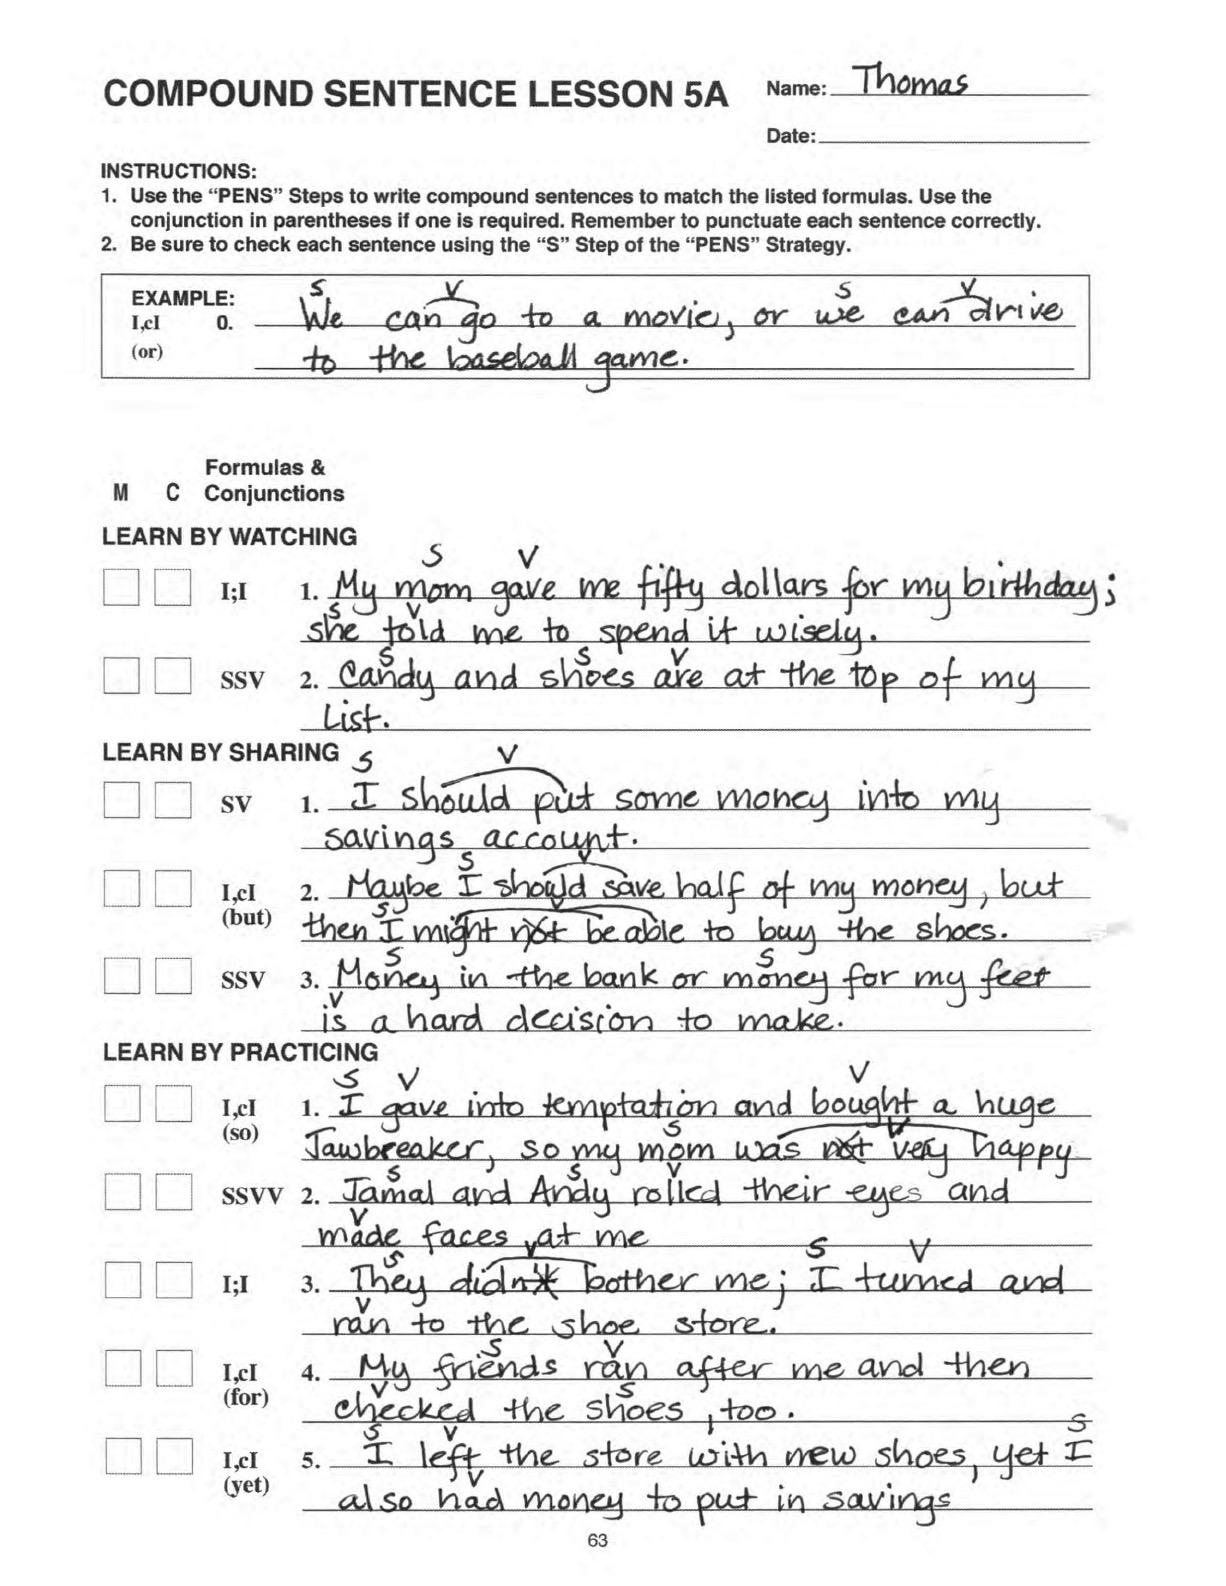 COMPOUND SENTENCE LESSON 5A Name: Thomas
Date:
INSTRUCTIONS:
1. Use the “PENS” Steps to write compound sentences to match the listed formulas. Use the
conjunction in parentheses if one is required. Remember to punctuate each sentence correctly.
2. Be sure to check each sentence using the “S” Step of the “PENS” Strategy.
S V S V
EXAMPLE:
I,cI 0. We can go to a movie, or we can drive
(or) to the baseball game.
Formulas &
M C Conjunctions
LEARN BY WATCHING
S V
I;I 1. My mom gave me fifty dollars for my birthday;
S V
she told me to spend it wisely.
S S V
SSV 2. Candy and shoes are at the top of my
List.
LEARN BY SHARING
S V
SV 1. I should put some money into my
savings account.
S V
I,cI 2. Maybe I should save half of my money, but
(but)
S V
then I might not be able to buy the shoes.
S S
SSV 3. Money in the bank or money for my feet
V
is a hard decision to make.
LEARN BY PRACTICING
S V V
I,cI 1. I gave into temptation and bought a huge
(so)
S V
Jawbreaker, so my mom was not very happy
S S V
SSVV 2. Jamal and Andy rolled their eyes and
V
made faces at me
S V S V
I;I 3. They didn't bother me; I turned and
V
ran to the shoe store.
S V
I,cI 4. My friends ran after me and then
(for)
V S
checked the shoes, too.
S V S
I,cI 5. I left the store with new shoes, yet I
(yet)
V
also had money to put in savings
63